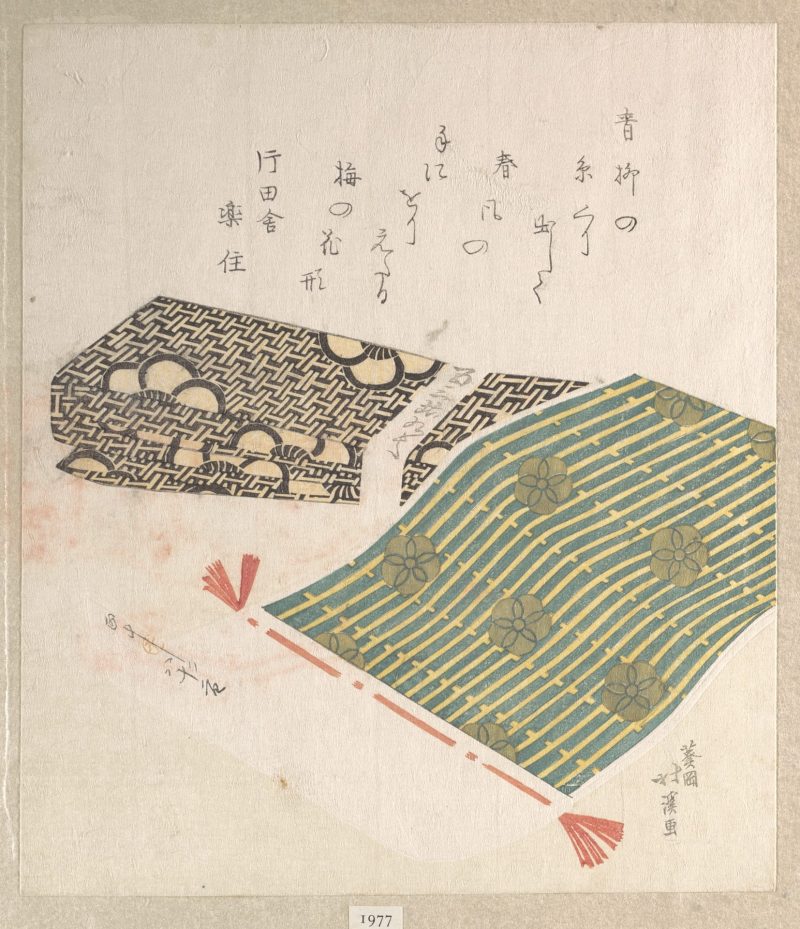 青柳の
糸くり
出して
春風の
手に
をり
えたる
梅の花
形
片田舎
楽住
葵岡
北渓画
1977